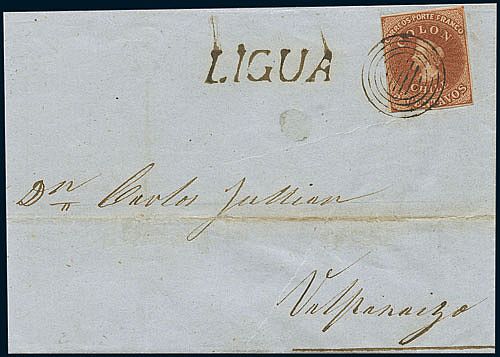 LIGUA
CORREOS PORTE FRANCO
COLON
CHILE
CENTAVOS
Dn Carlos Jullian
Valparaizo